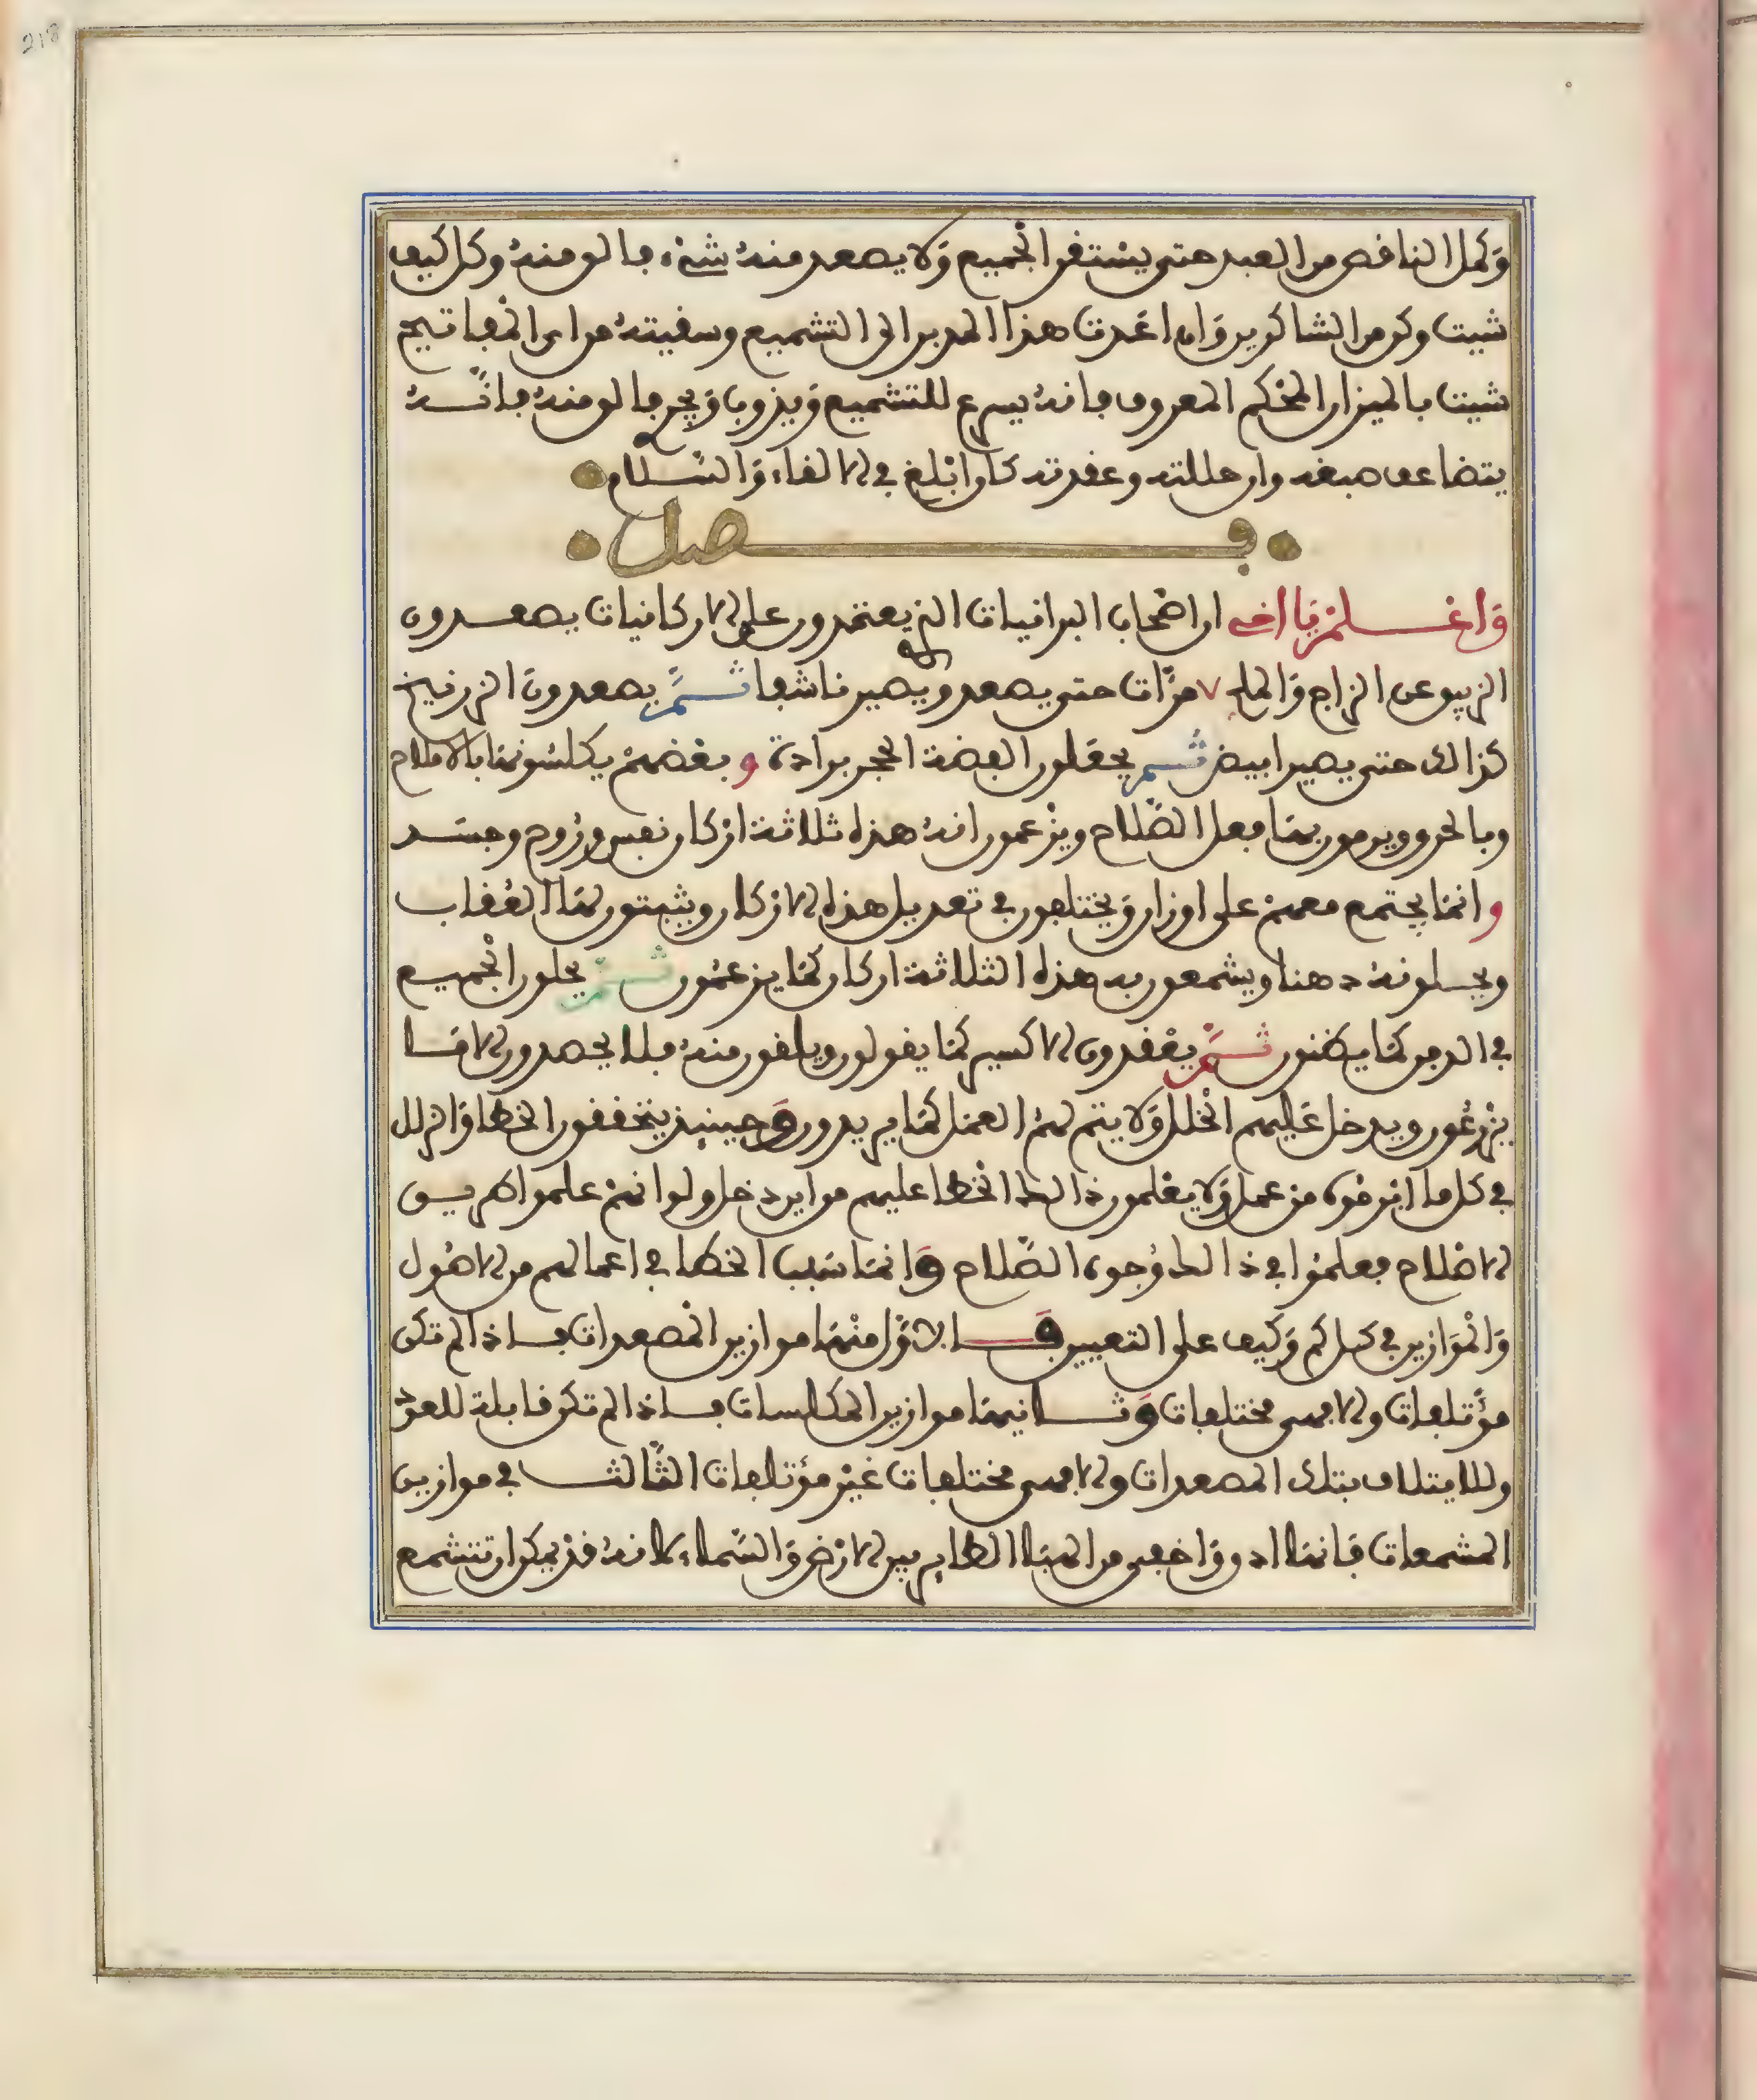 218
وَكمل الناقص من العبد حتى يستقر الجميع وَلا يصعد منه شيء فالق منه وكل كيف
شيت وكن من الشاكرين وَان اعَدت هذا المدبر الى التشميع وسقيته من اى المفاتيح
شيت بالميزان المحْكم المعروف فانه يسرع للتشميع وَيذوب وَيجر فالق منه فانّــه
يتضاعف صبغه وان حللته وعقدته كان ابْلغ في الالقاء وَالسّــلام
فــــصل
وَاعْــــلمْ يَا اخى ان اصْحاب البرانيات الذ يعتمدون على الاركانيات يصعــدون
الزيبق عن الزاج وَالملح ٧ مرَّات حتى يصعد ويصير ناشفا ثــمَّ يصعدون الزرنيخ
كذالك حتى يصير ابيض ثُــم يجعَلون الفضة الحجر برادة و بعْضهمْ يكلسُونها بالاملاح
وبالحرق ويرمون بها فعل الصّلاح ويزْعمون انه هذه ثلاثة ارْكان نفس ورُوح وجسَــد
و انما يجتمع معهمْ على اوزان وَيختلفون في تعديل هذه الارْكان ويثبتون لها العُقاب
ويحــلونه دهنا ويشمعون به هذه الثلاثة اركان كمَا يزعمُون ثــمّ يحلون الْجميــع
في الدمن كمَا يظنون ثــمّ يعْقدون الاكسير كمَا يقولون ويلقون منه فلا يحصدون الا مَــا
يزْرعُون ويدخل عَليهم الْخلل وَلا يتم لهمُ العمَل كمَا يريدون وَحينيذ يتحققون الخطا وَالزلل
في كل ما ابْرمُوه من عمل وَلا يعْلمون ذالك الْخطا عليهم من اين دخل ولو انهمْ علموا طريــق
الاصْلاح فعلمُوا في ذالك وُجوه الصّلاح وَانما سَبب الخطا في اعمالهم من الاصُول
وَالْمَوازين في كــل كم وَكيف على التعيين فَــالاوّل منْهَا موازين الْمصعدات فــاذا لم تكن
مؤتلفات والا فهى مختلفات وَثــانيهَا موازين المكلسات فــاذا لم تكن قابلة للعوْد
وللايتلاف بتلك المصعدات والا فهى مختلفات غيْر مؤتلفات الثّالثــ في موازين
المشمعات فانهَا ادق وَاخفى من الهبَا الطاير بين الارْض وَالسَّماء لانه قدْ يمكن ان تتشمع